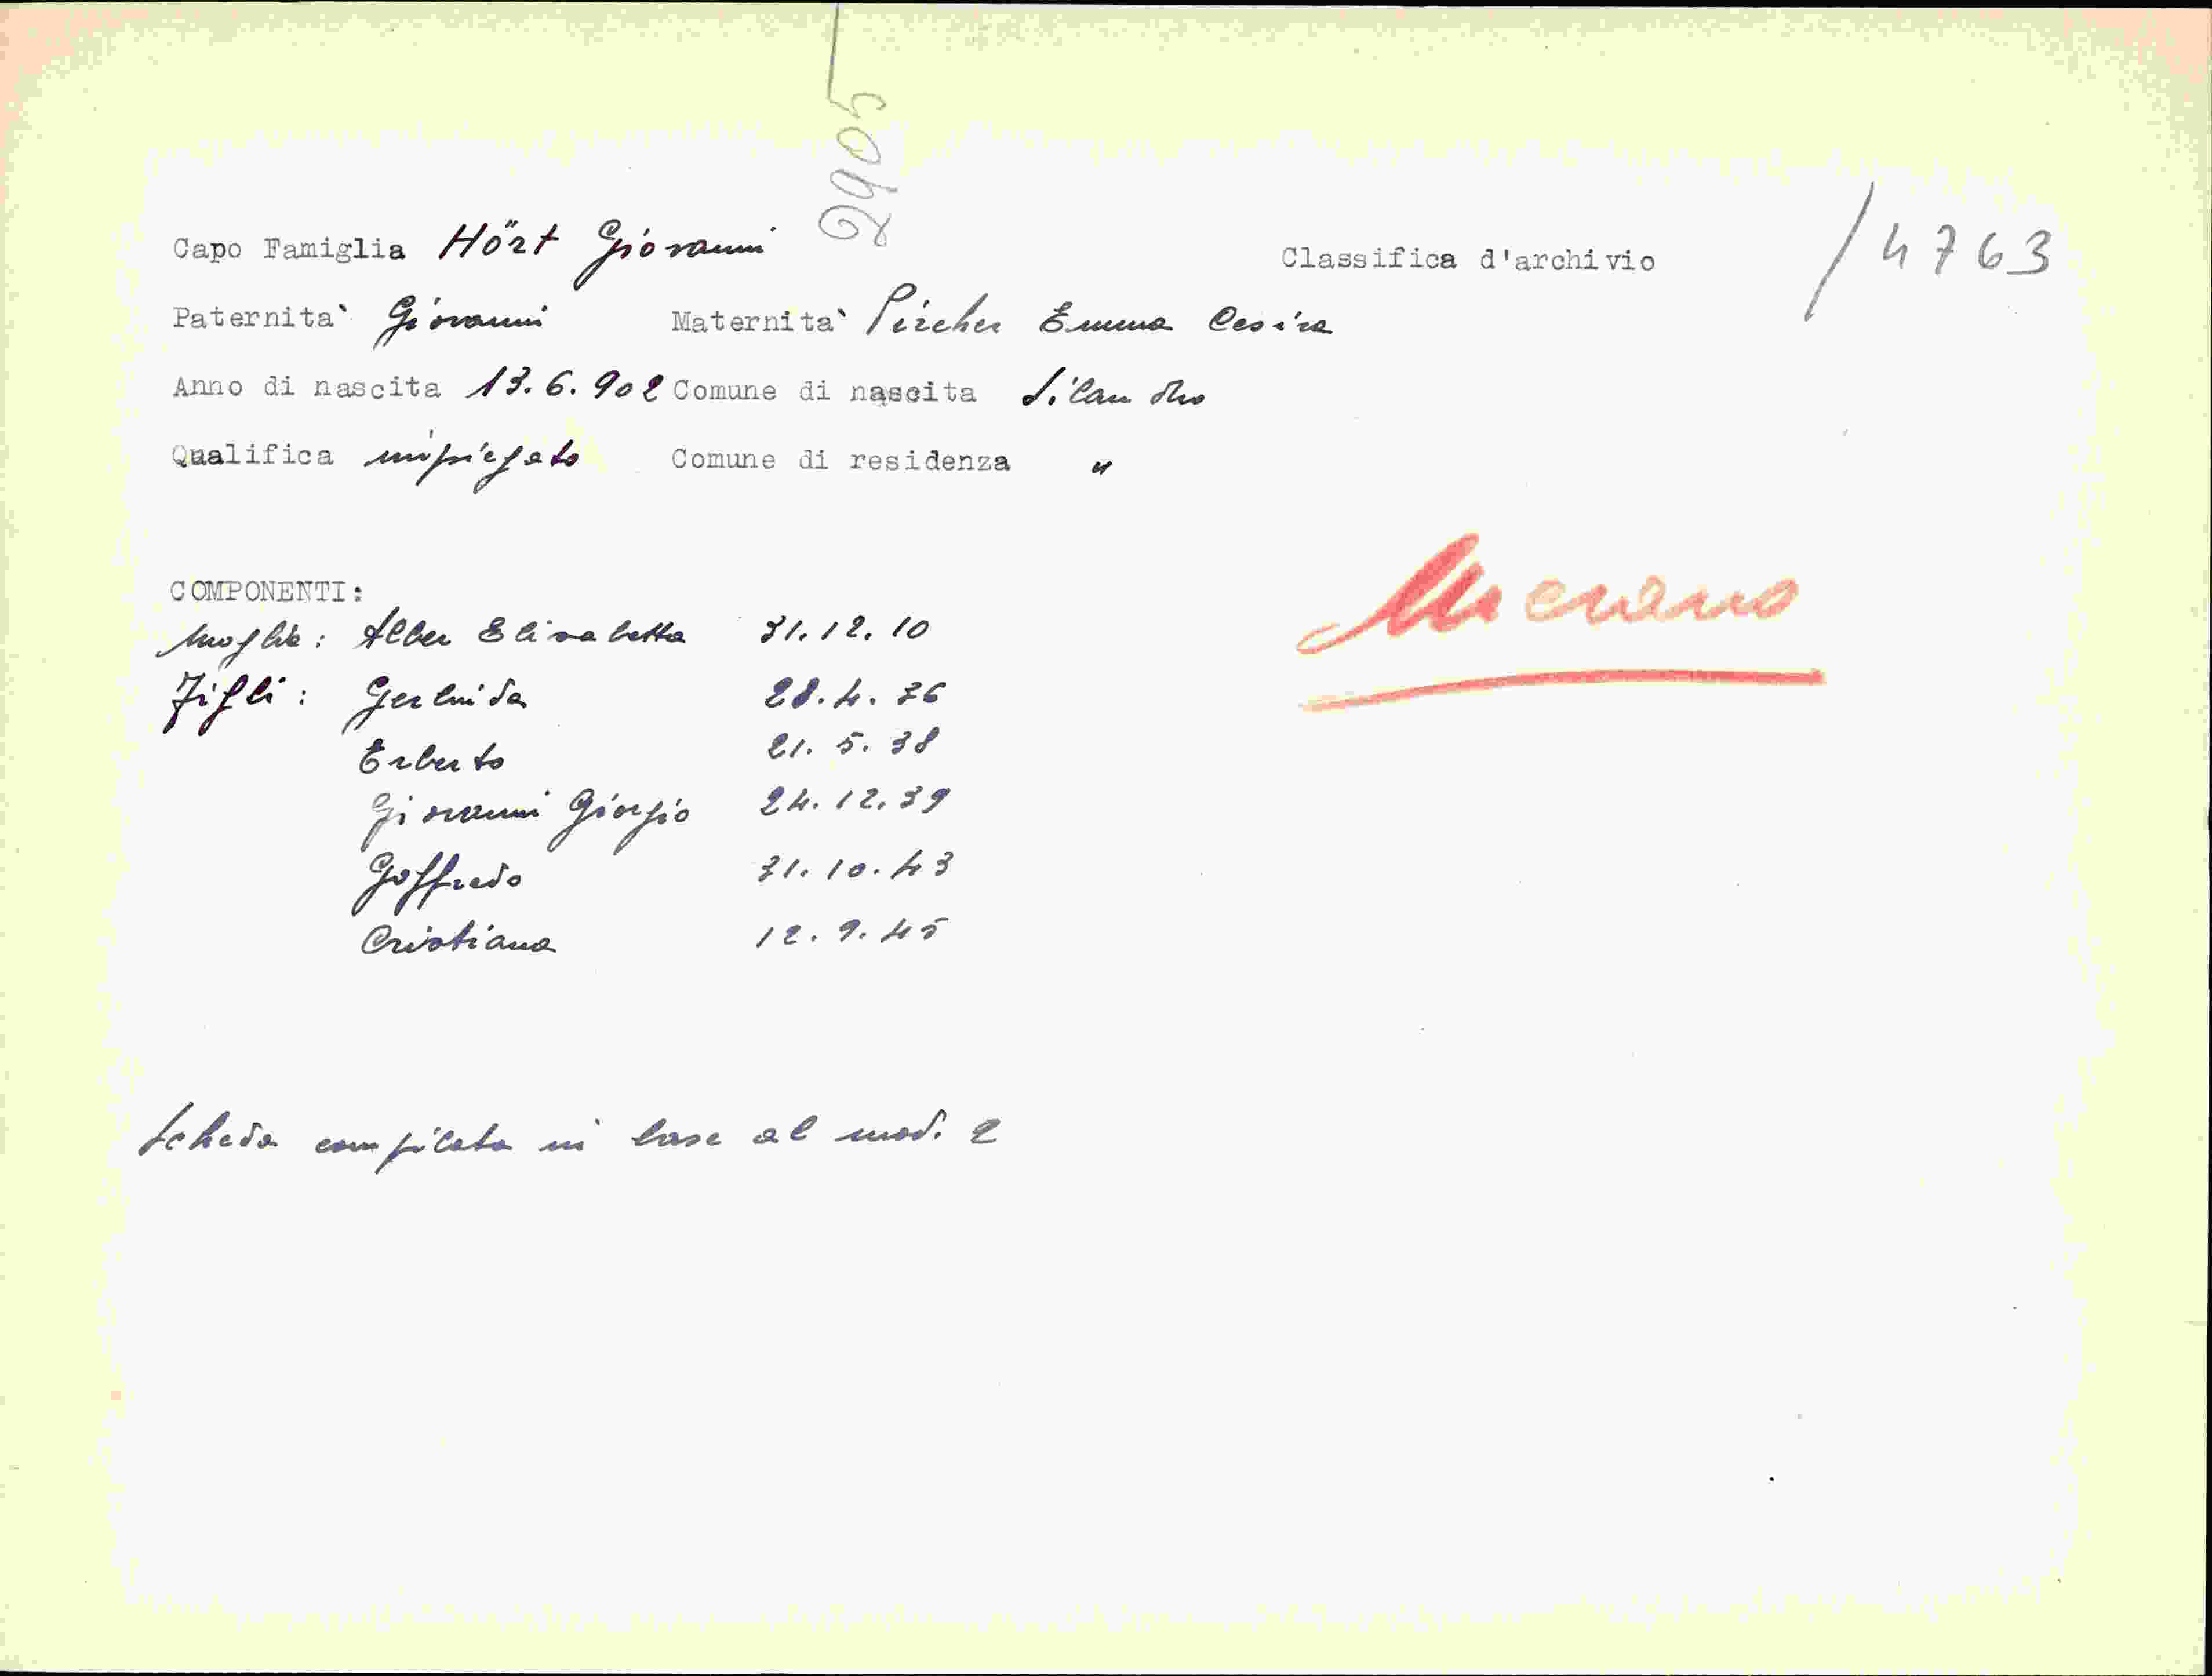 29405
Capo Famiglia Hört Giovanni Classifica d'archivio /4763
Paternita` Giovanni Maternita` Pircher Emma Cesira
Anno di nascita 13.6.902 Comune di nascita Silandro
Qualifica impiegato Comune di residenza "
Merano
COMPONENTI:
Moglie: Alber Elisabetta 31.12.10
Figli: Gerlinda 28.4.36
Erberto 21.5.38
Giovanni Giorgio 24.12.39
Goffredo 31.10.43
Cristiana 12.9.45
Scheda compilata in base al mod. 2